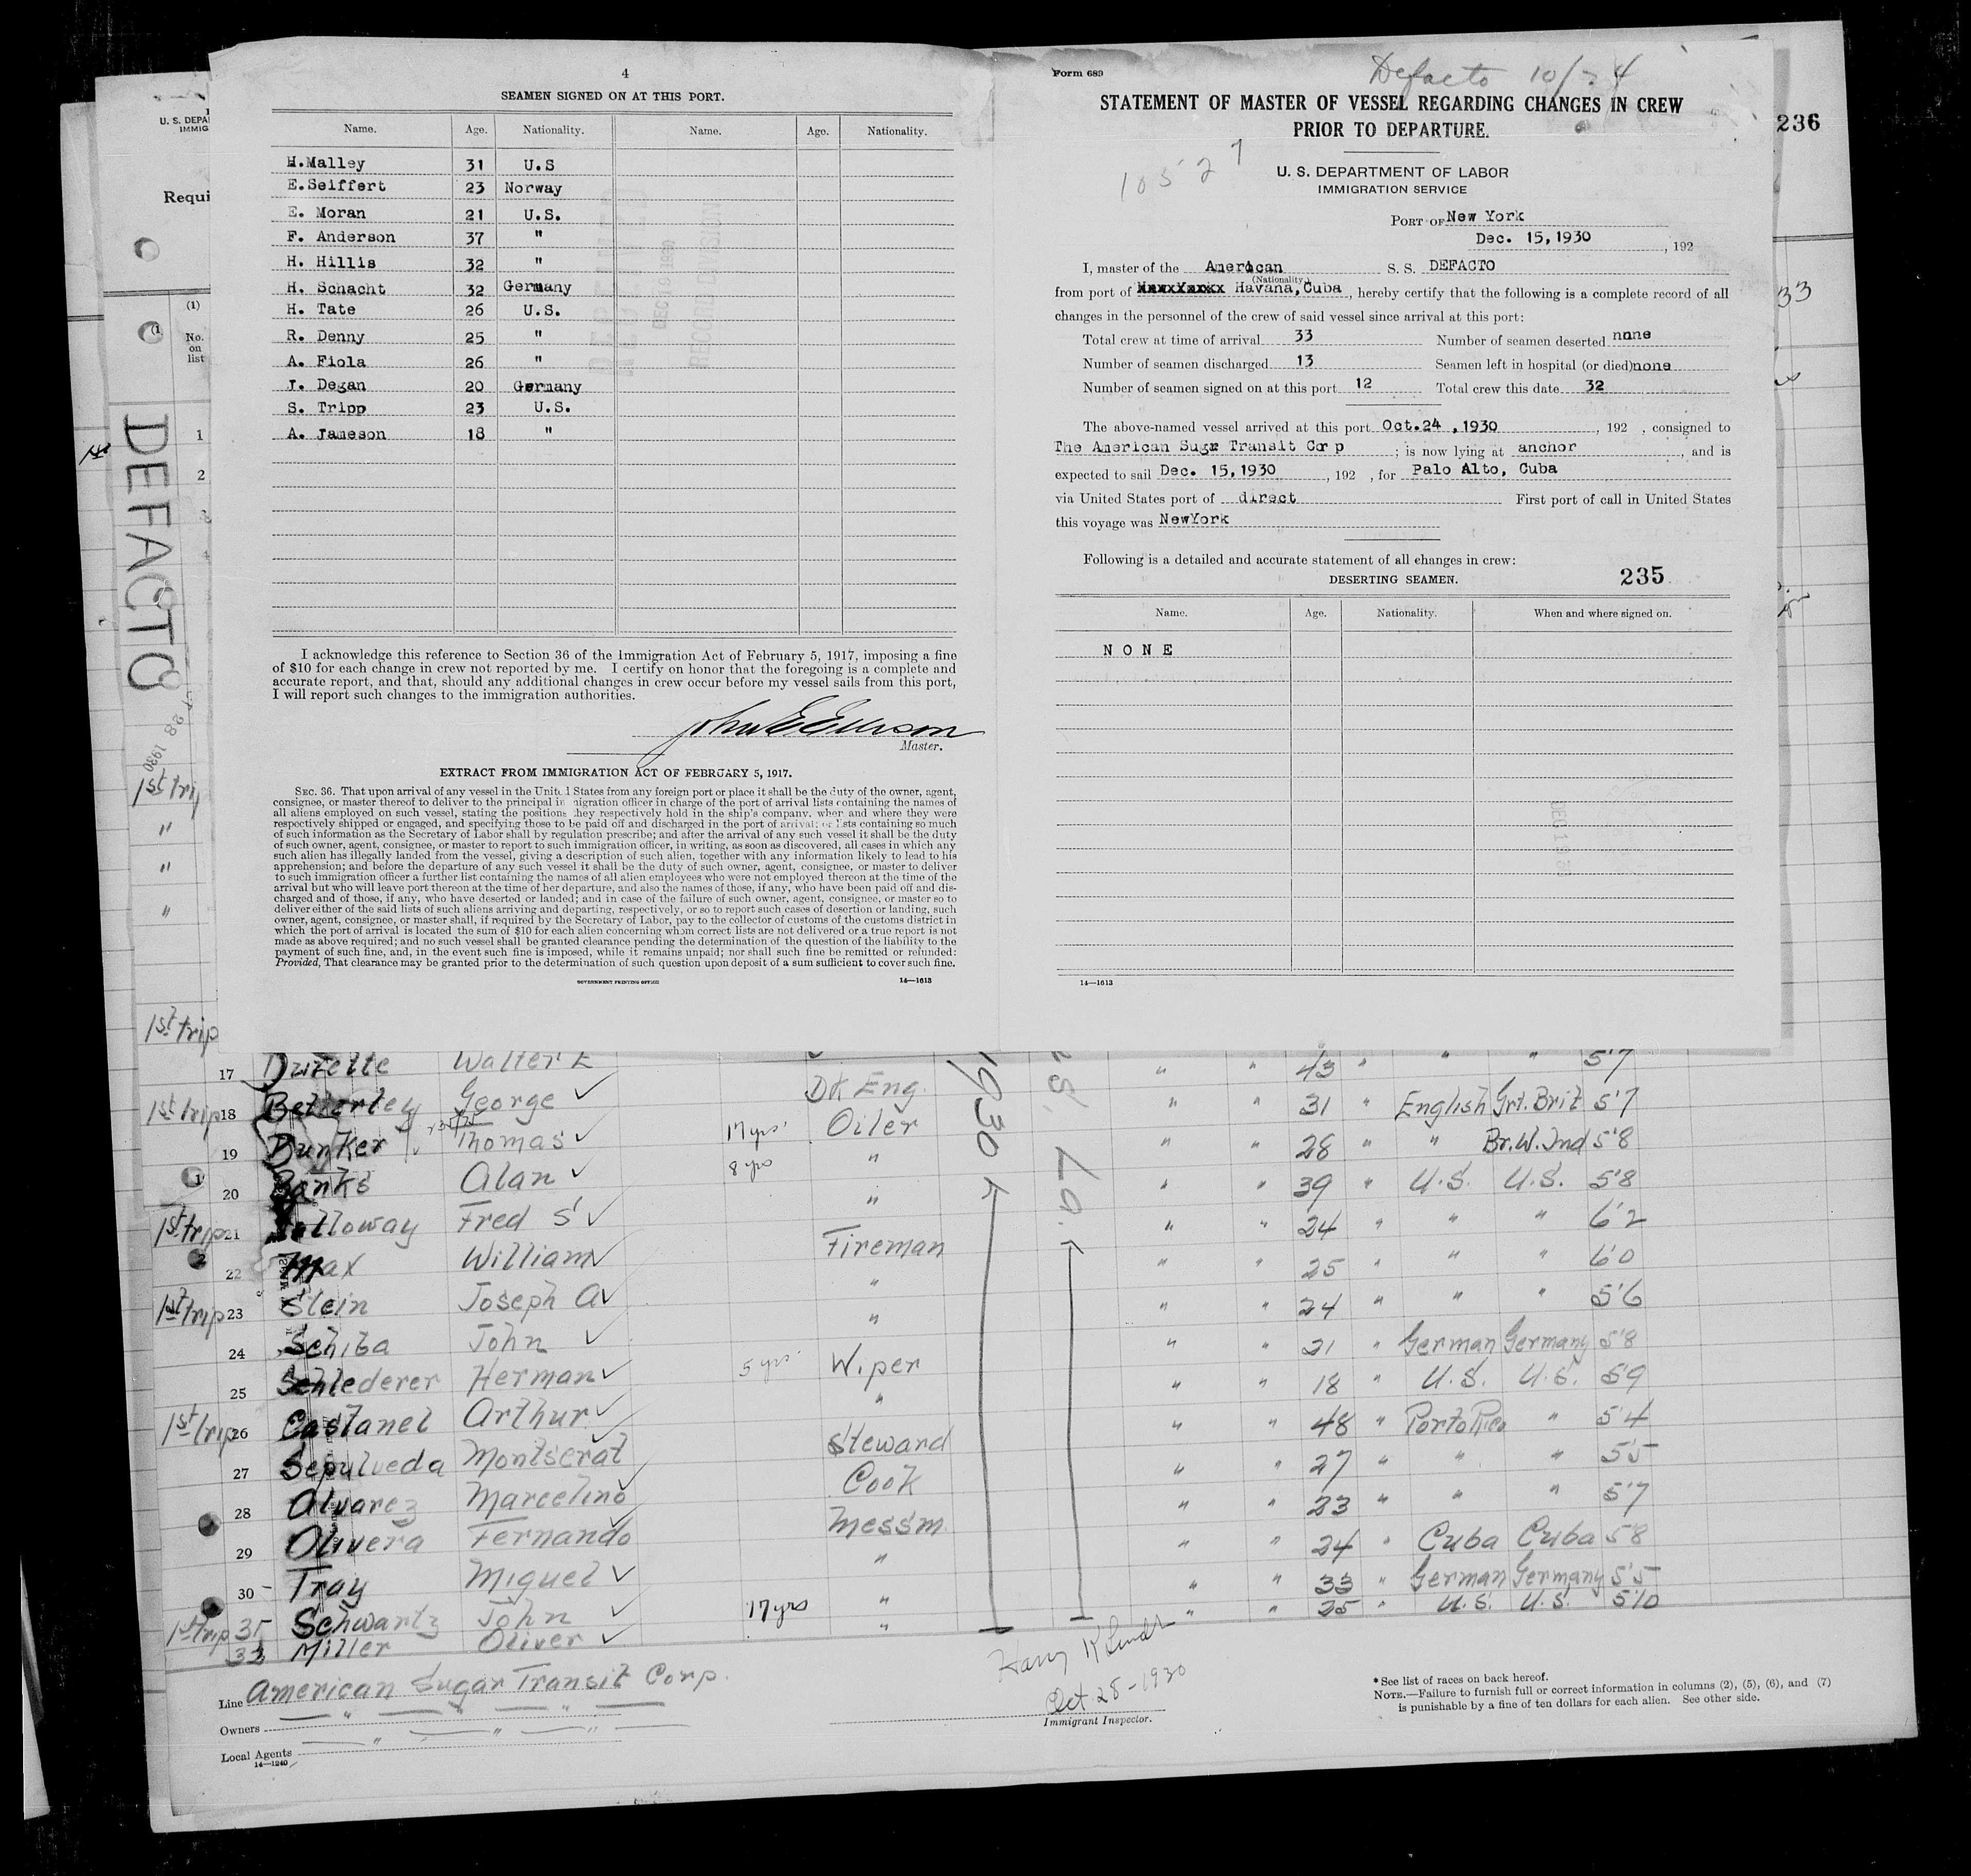 4
SEAMEN SIGNED ON AT THIS PORT.
Name. Age. Nationality. Name. Age. Nationality.
H.Malley 31 U.S
E.Seiffert 23 Norway
E. Moran 21 U.S.
F. Anderson 37 "
H. Hillis 32 "
H. Schacht 32 Germany
H. Tate 26 U.S.
R. Denny 25 "
A. Fiola 26 "
J. Degan 20 Germany
S. Tripp 23 U.S.
A. Jameson 18 "
I acknowledge this reference to Section 36 of the Immigration Act of February 5, 1917, imposing a fine
of $10 for each change in crew not reported by me. I certify on honor that the foregoing is a complete and
accurate report, and that, should any additional changes in crew occur before my vessel sails from this port,
I will report such changes to the immigration authorities.
Master.
EXTRACT FROM IMMIGRATION ACT OF FEBRUARY 5, 1917.
SEC. 36. That upon arrival of any vessel in the United States from any foreign port or place it shall be the duty of the owner, agent,
consignee, or master thereof to deliver to the principal immigration officer in charge of the port of arrival lists containing the names of
all aliens employed on such vessel, stating the positions they respectively hold in the ship's company, when and where they were
respectively shipped or engaged, and specifying those to be paid off and discharged in the port of arrival; or lists containing so much
of such information as the Secretary of Labor shall by regulation prescribe; and after the arrival of any such vessel it shall be the duty
of such owner, agent, consignee, or master to report to such immigration officer, in writing, as soon as discovered, all cases in which any
such alien has illegally landed from the vessel, giving a description of such alien, together with any information likely to lead to his
apprehension; and before the departure of any such vessel it shall be the duty of such owner, agent, consignee, or master to deliver
to such immigration officer a further list containing the names of all alien employees who were not employed thereon at the time of the
arrival but who will leave port thereon at the time of her departure, and also the names of those, if any, who have been paid off and dis-
charged and of those, if any, who have deserted or landed; and in case of the failure of such owner, agent, consignee, or master so to
deliver either of the said lists of such aliens arriving and departing, respectively, or so to report such cases of desertion or landing, such
owner, agent, consignee, or master shall, if required by the Secretary of Labor, pay to the collector of customs of the customs district in
which the port of arrival is located the sum of $10 for each alien concerning whom correct lists are not delivered or a true report is not
made as above required; and no such vessel shall be granted clearance pending the determination of the question of the liability to the
payment of such fine, and, in the event such fine is imposed, while it remains unpaid; nor shall such fine be remitted or refunded:
Provided, That clearance may be granted prior to the determination of such question upon deposit of a sum sufficient to cover such fine.
GOVERNMENT PRINTING OFFICE 14—1613
Form 689
Defacto 10/24
STATEMENT OF MASTER OF VESSEL REGARDING CHANGES IN CREW
PRIOR TO DEPARTURE.
10527
U. S. DEPARTMENT OF LABOR
IMMIGRATION SERVICE
PORT OF New York
Dec. 15,1930, 192
I, master of the American S. S. DEFACTO
(Nationality)
from port of Havana,Cuba, hereby certify that the following is a complete record of all
changes in the personnel of the crew of said vessel since arrival at this port:
Total crew at time of arrival 33 Number of seamen deserted none
Number of seamen discharged 13 Seamen left in hospital (or died) none
Number of seamen signed on at this port 12 Total crew this date 32
The above-named vessel arrived at this port Oct.24 ,1930, 192 , consigned to
The American Sugr Transit Corp ; is now lying at anchor, and is
expected to sail Dec. 15,1930, 192 , for Palo Alto, Cuba
via United States port of direct First port of call in United States
this voyage was NewYork
Following is a detailed and accurate statement of all changes in crew:
DESERTING SEAMEN. 235
Name. Age. Nationality. When and where signed on.
N O N E
14—1613
236
33
U. S. DEPA
IMMIG
Requi
(1)
No.
on
list
DEFACTO
28 1930
1
2
3
4
1st trip
"
"
"
1st trip
17 Walter E " " 43 " " " 5'7
1st trip 18 Betterley George Dk Eng. " " 31 " English Grt. Brit 5'7
19 Bunker Thomas 17 yrs. Oiler " " 28 " " Br.W.Ind 5'8
20 Banks Alan 8 yrs " " " 39 " U.S. U.S. 5'8
1st trip 21 Holloway Fred S " " " 24 " " " 6'2
22 Max William Fireman " " 25 " " " 6'0
1st trip 23 Stein Joseph A " " " 24 " " " 5'6
24 Schiba John " " " 21 " German Germany 5'8
25 Schlederer Herman 5 yrs. Wiper " " 18 " U.S. U.S. 5'9
1st trip 26 Castanel Arthur " " " 48 " Porto Rico " 5'4
27 Sepulveda Montserat Steward " " 27 " " " 5'5
28 Alvarez Marcelino Cook " " 23 " " " 5'7
29 Olivera Fernando Messm. " " 24 " Cuba Cuba 5'8
30 Tray Miguel " " " 33 " German Germany 5'5
1st trip 31 Schwartz John 17 yrs " " " 25 " U.S. U.S. 5'10
33 Miller Oliver "
1930
La.
Line American Sugar Transit Corp.
Owners " " "
Local Agents " " "
14—1240
Oct. 28-1930
Immigrant Inspector.
*See list of races on back hereof.
NOTE.—Failure to furnish full or correct information in columns (2), (5), (6), and (7)
is punishable by a fine of ten dollars for each alien. See other side.